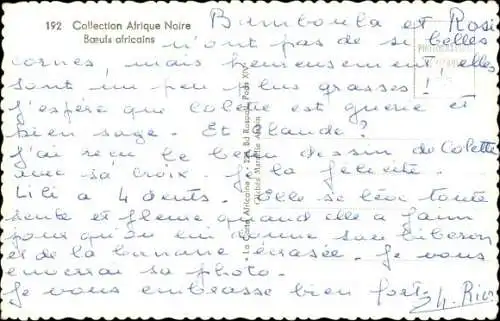 192 Collection Afrique Noire
Bœufs africains
Bumboula et Rose
n'ont pas de si belles
cornes mais heureusement elles
sont un peu plus grasses !
J'espère que Colette est guérie et
bien sage. Et Claude ?
J'ai reçu le beau dessin de Colette
avec sa croix. Je la félicite.
Lili a 4 dents. Elle se lève toute
seule et pleure quand elle a faim
pour qu'on lui donne son biberon
et de la banane écrasée. Je vous
enverrai sa photo.
Je vous embrasse bien fort.
• La Carte Africaine • - 224, Bd Raspail, Paris XIVe